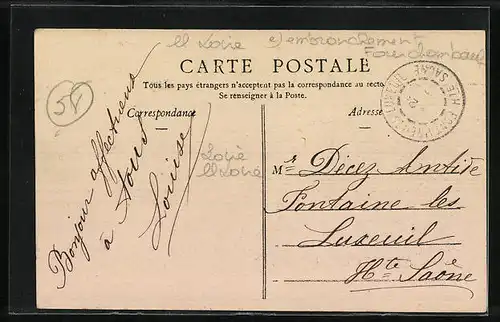 ll Loire e) embranchement
Fourchambault
CARTE POSTALE
Tous les pays étrangers n'acceptent pas la correspondance au recto
Se renseigner à la Poste.
58
Correspondance
Adresse
Bonjour affectueux
à tous
Louise
Loire
ll Loire
Mr Décez
Fontaine les
Luxeuil
Hte Saône
HTE SAÔNE